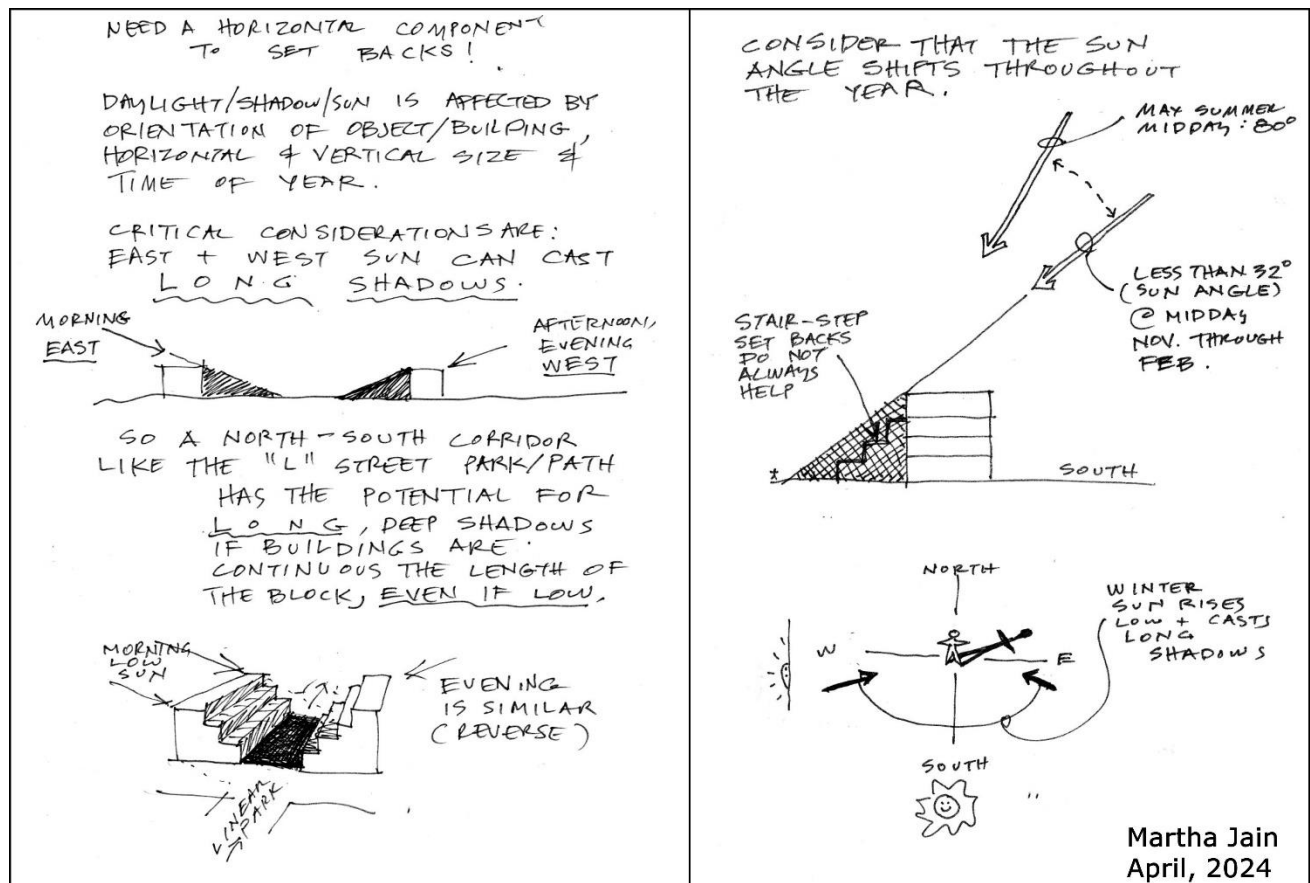 NEED A HORIZONTAL COMPONENT
TO SET BACKS!
DAYLIGHT/SHADOW/SUN IS AFFECTED BY
ORIENTATION OF OBJECT/BUILDING,
HORIZONTAL & VERTICAL SIZE &
TIME OF YEAR.
CRITICAL CONSIDERATIONS ARE:
EAST + WEST SUN CAN CAST
LONG SHADOWS.
MORNING
EAST
AFTERNOON,
EVENING
WEST
SO A NORTH-SOUTH CORRIDOR
LIKE THE "L" STREET PARK/PATH
HAS THE POTENTIAL FOR
LONG, DEEP SHADOWS
IF BUILDINGS ARE
CONTINUOUS THE LENGTH OF
THE BLOCK, EVEN IF LOW.
MORNING
LOW
SUN
EVENING
IS SIMILAR
(REVERSE)
LINEAR
PARK
CONSIDER THAT THE SUN
ANGLE SHIFTS THROUGHOUT
THE YEAR.
MAX SUMMER
MIDDAY: 80°
LESS THAN 32°
(SUN ANGLE)
@ MIDDAY
NOV. THROUGH
FEB.
STAIR-STEP
SET BACKS
DO NOT
ALWAYS
HELP
SOUTH
NORTH
WINTER
SUN RISES
LOW + CASTS
LONG
SHADOWS
W
E
SOUTH
Martha Jain
April, 2024